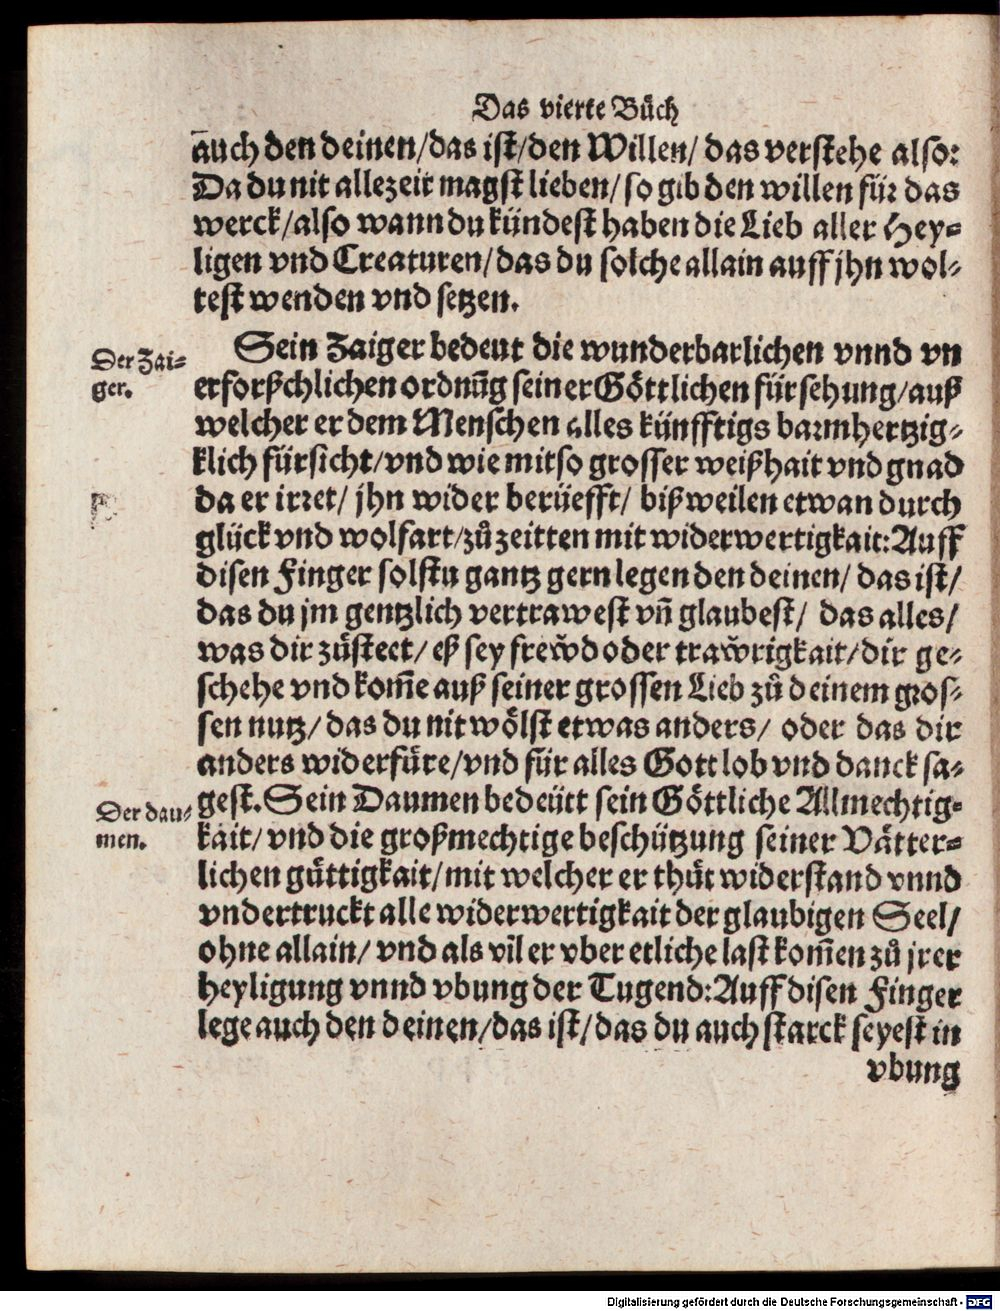 Das vierte Bůch
auch den deinen/das ist/den Willen/ das verstehe also:
Da du nit allezeit magst lieben/so gib den willen für das
werck/also wann du kündest haben die Lieb aller Hey=
ligen vnd Creaturen/das du solche allain auff jhn wol=
test wenden vnd setzen.
Der Zai=
ger.
Sein Zaiger bedeut die wunderbarlichen vnnd vn
erforßchlichen ordnūg seiner Göttlichen fürsehung/auß
welcher er dem Menschen alles künfftigs barmhertzig=
klich fürsicht/vnd wie mit so grosser weißhait vnd gnad
da er irret/ jhn wider berüefft/ bißweilen etwan durch
glück vnd wolfart/zů zeitten mit widerwertigkait:Auff
disen Finger solstu gantz gern legen den deinen/ das ist/
das du jm gentzlich vertrawest vn̄ glaubest/ das alles/
was dir zůsteet/ eß sey frew̌d oder traw̌rigkait/dir ge=
schehe vnd kom̄e auß seiner grossen Lieb zů deinem gros=
sen nutz/das du nit wölst etwas anders/ oder das dir
anders widerfüre/vnd für alles Gott lob vnd danck sa=
gest.Sein Daumen bedeütt sein Göttliche Allmechtig=
Der dau=
men.
kait/vnd die großmechtige beschützung seiner Vätter=
lichen güttigkait/mit welcher er thůt widerstand vnnd
vndertruckt alle widerwertigkait der glaubigen Seel/
ohne allain/ vnd als vil er vber etliche last kom̄en zů jrer
heyligung vnnd vbung der Tugend:Auff disen Finger
lege auch den deinen/das ist/das du auch starck seyest in
vbung
Digitalisierung gefördert durch die Deutsche Forschungsgemeinschaft - DFG